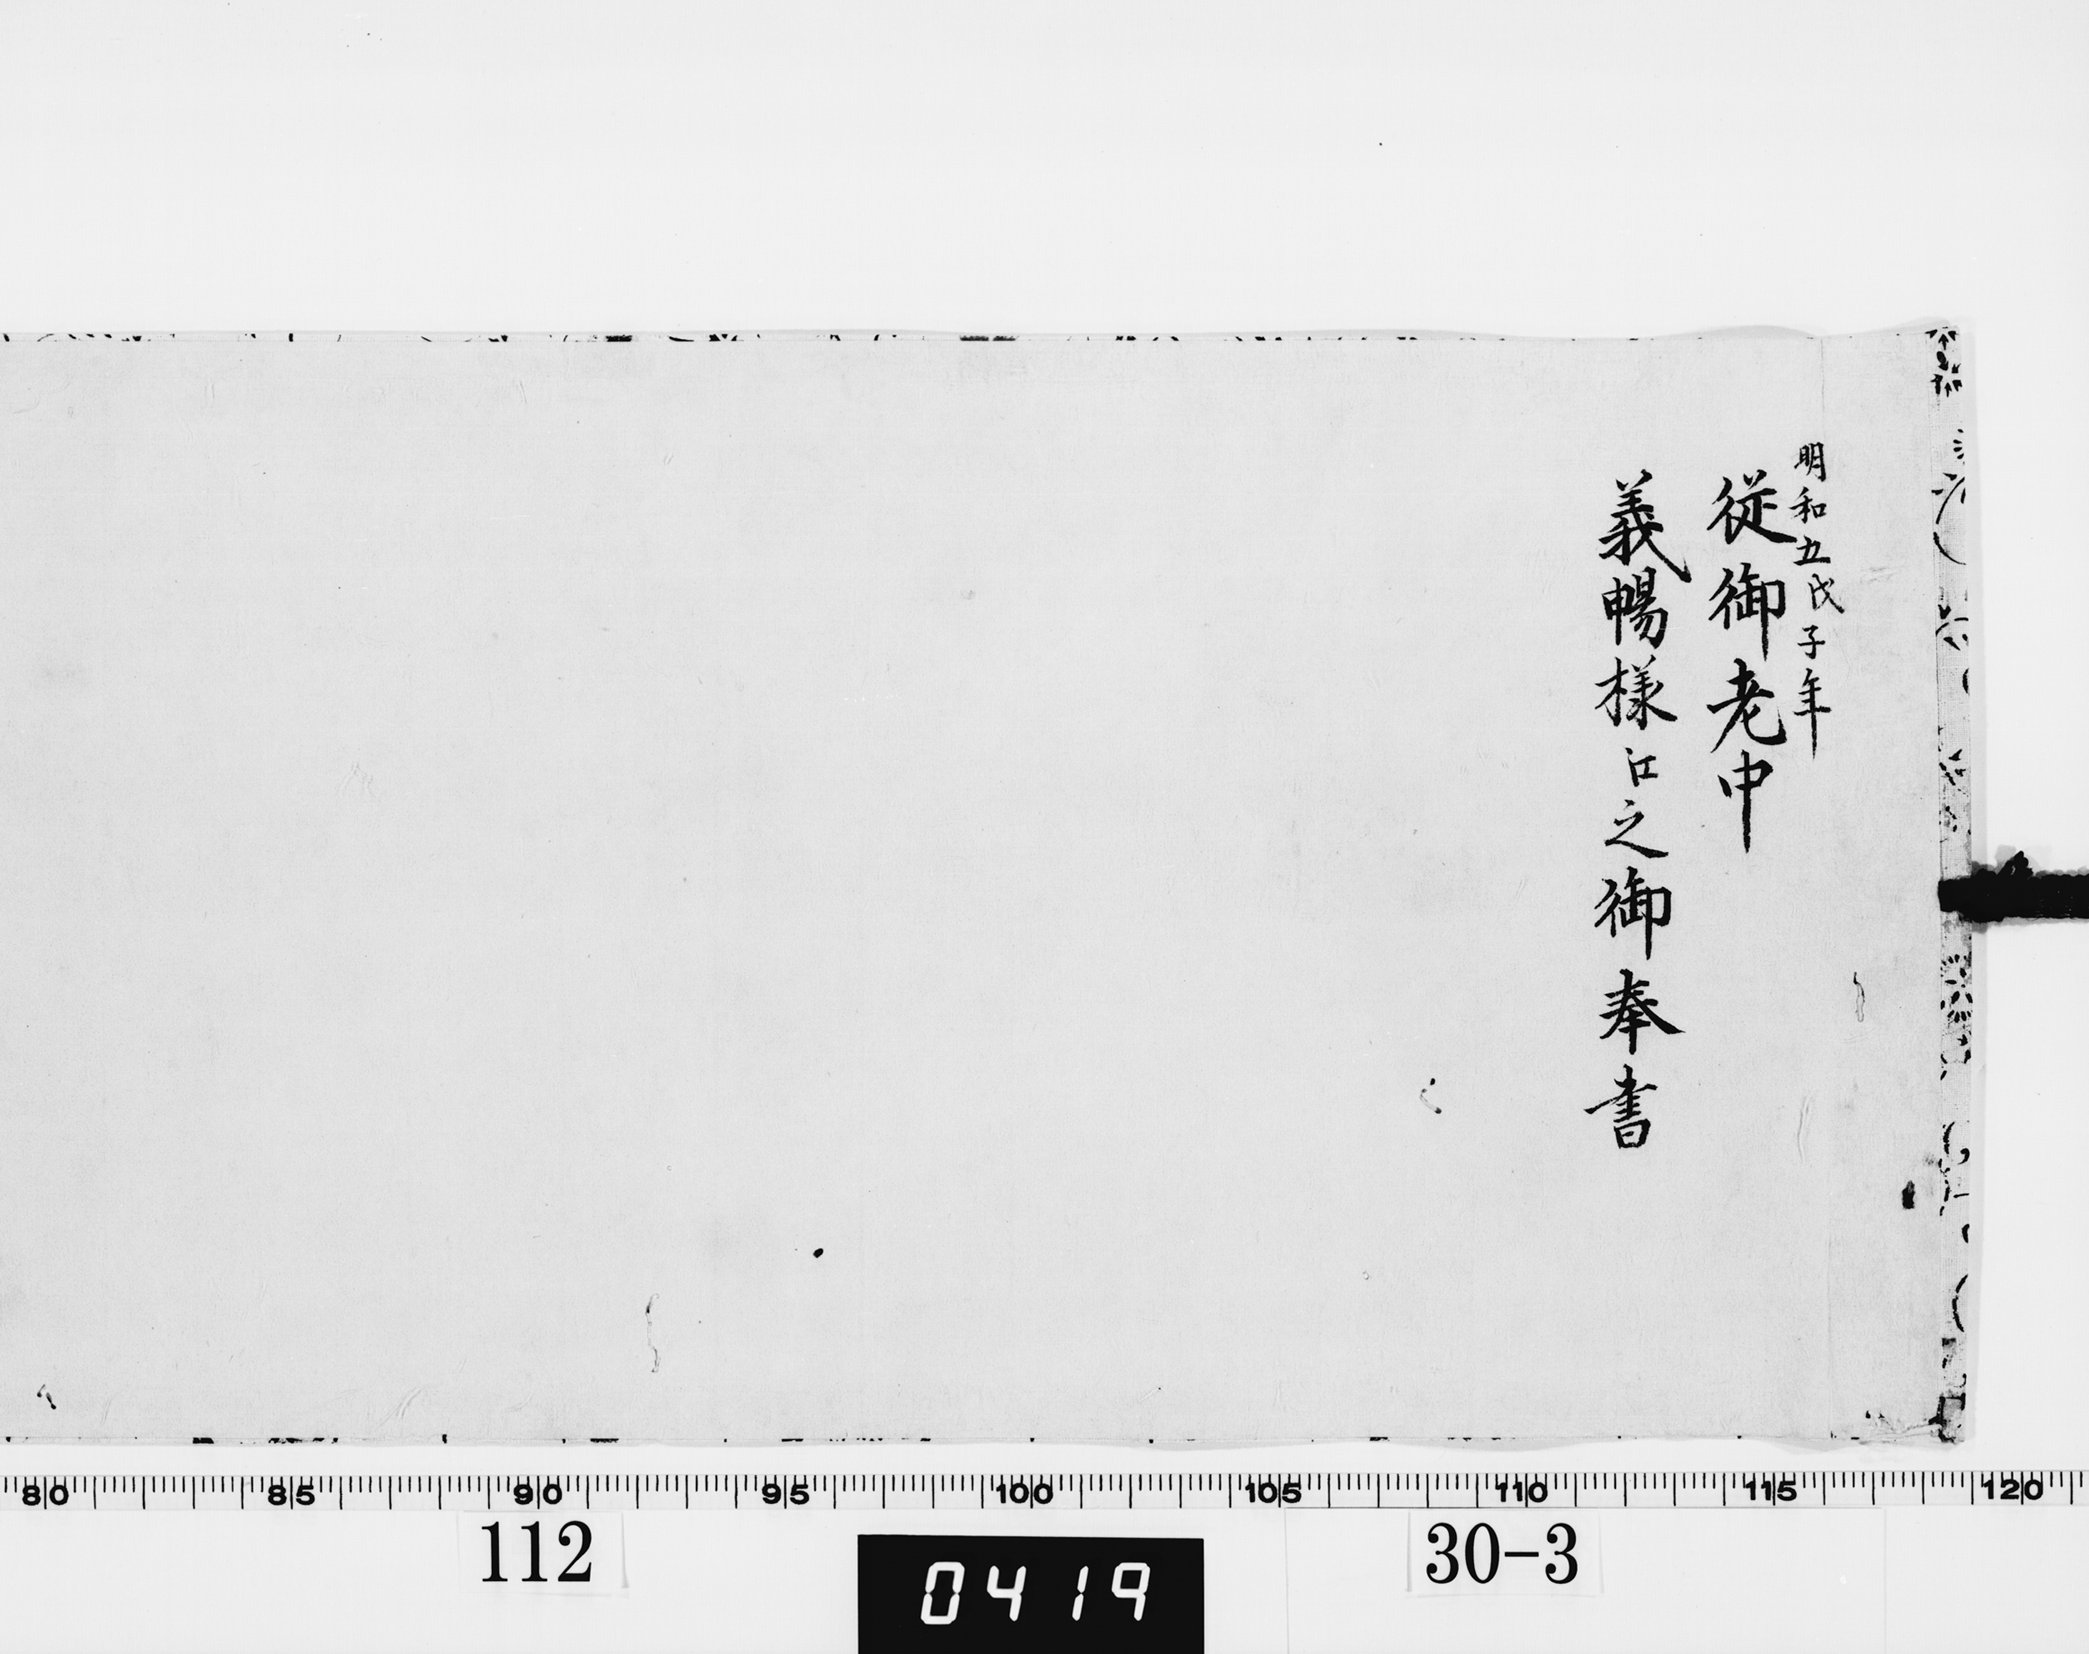 明和五戊子年
従御老中
義暢様江之御奉書
80 85 90 95 100 105 110 115 120
112
0419
30-3